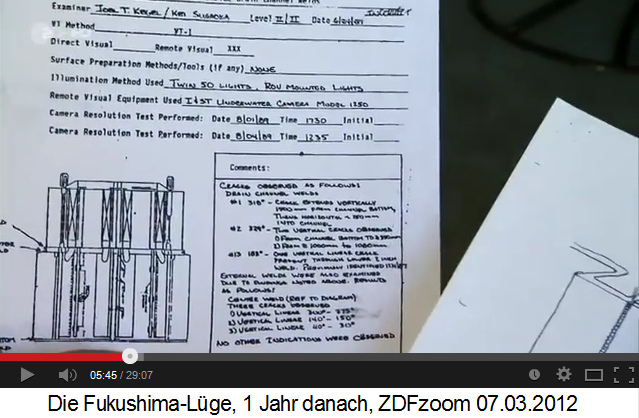 Examiner JOEL T. KEGEL/KEN SUGAOKA Level II/II Date
VI Method VT-1
Direct Visual Remote Visual XXX
Surface Preparation Methods/Tools (if any) NONE
Illumination Method Used TWIN 50 LIGHTS, ROV MOUNTED LIGHTS
Remote Visual Equipment Used IST UNDERWATER CAMERA MODEL 1250
Camera Resolution Test Performed: Date 8/01/89 Time 1730 Initial
Camera Resolution Test Performed: Date 8/04/89 Time 1235 Initial
Comments:
CRACKS OBSERVED AS FOLLOWS:
DRAIN CHANNEL WELDS
CRACK EXTENDS VERTICALLY
FROM CHANNEL BOTTOM,
THENS HORIZONTAL
INTO CHANNEL
TWO VERTICAL CRACKS OBSERVED
FROM CHANNEL BOTTOM TO
ONE VERTICAL LINEAR CRACK
PRESENT THROUGH LOWER 1 INCH
WELD. PREVIOUSLY IDENTIFIED
EXTERNAL WELDS WERE ALSO EXAMINED
DUE TO FINDINGS NOTED ABOVE. RESULTS
AS FOLLOWS:
CENTER WELD (REF TO DIAGRAM)
THREE CRACKS OBSERVED
1) VERTICAL LINEAR
2) VERTICAL LINEAR 140° - 150°
3) VERTICAL LINEAR 40° - 30°
NO OTHER INDICATIONS WERE OBSERVED
05:45 / 29:07
Die Fukushima-Lüge, 1 Jahr danach, ZDFzoom 07.03.2012